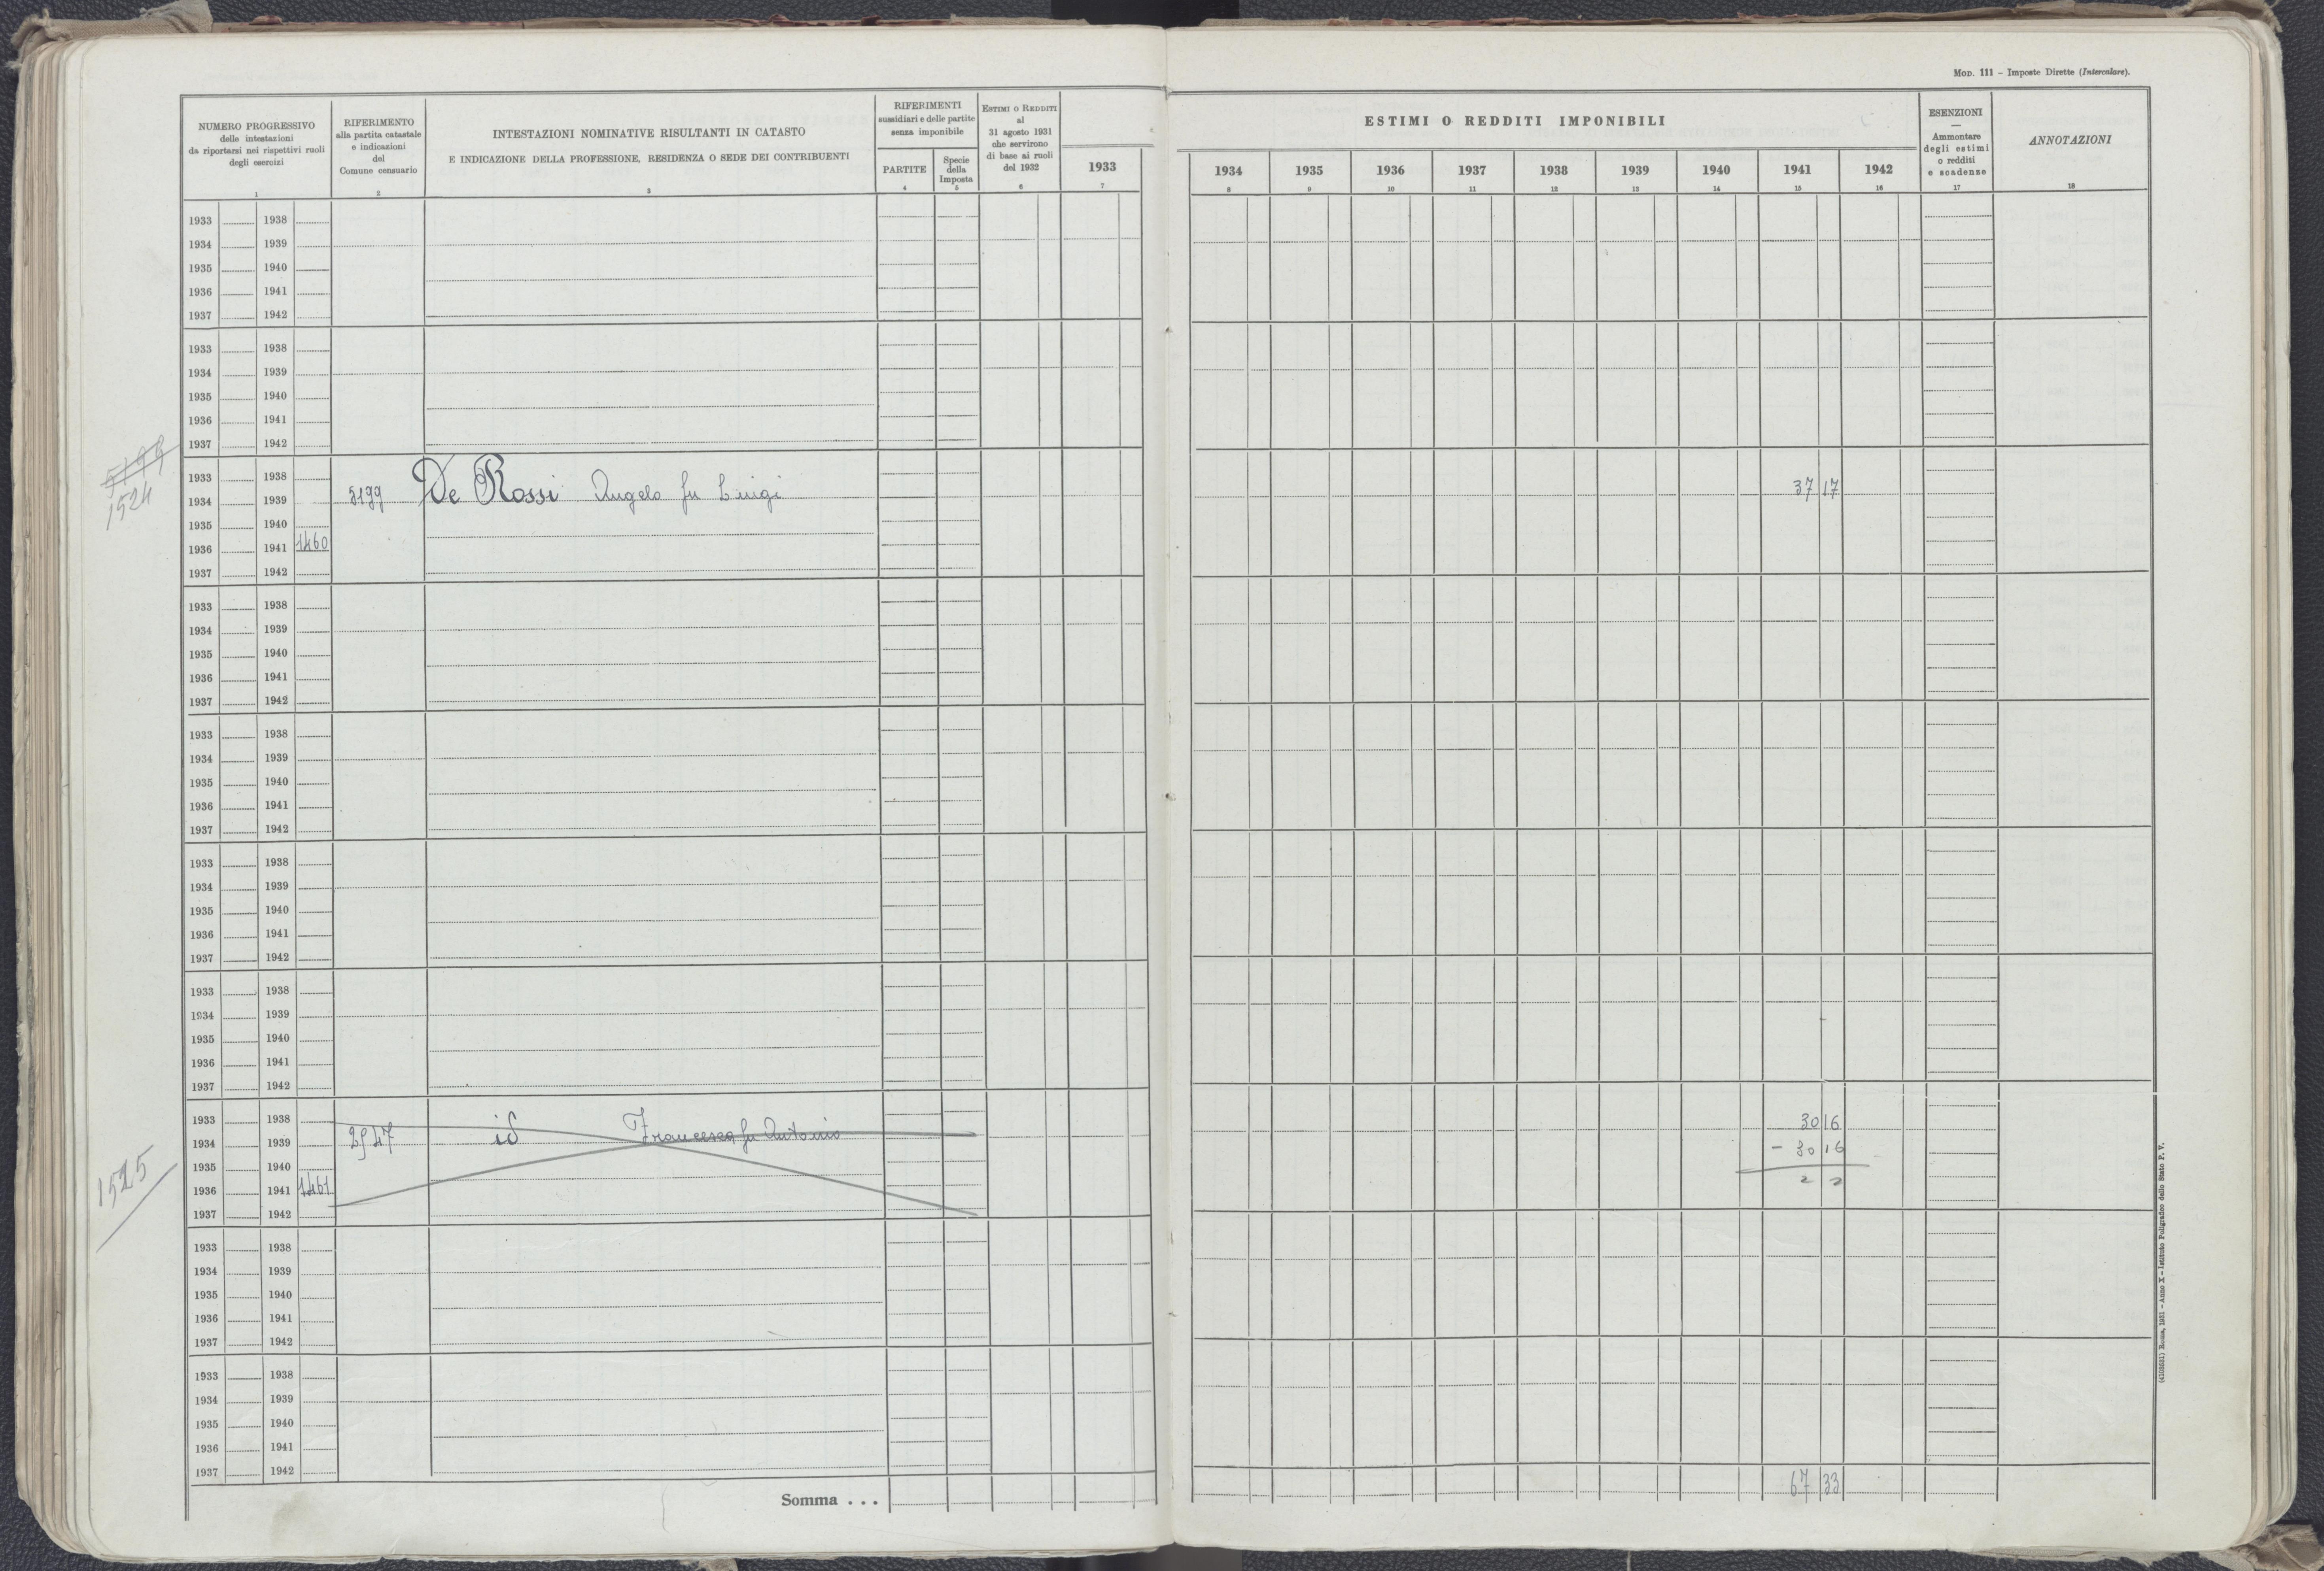 MOD. 111 – Imposte Dirette (Intercalare).
NUMERO PROGRESSIVO
delle intestazioni
da riportarsi nei rispettivi ruoli
degli esercizi
1
RIFERIMENTO
alla partita catastale
e indicazioni
del
Comune censuario
2
INTESTAZIONI NOMINATIVE RISULTANTI IN CATASTO
E INDICAZIONE DELLA PROFESSIONE, RESIDENZA O SEDE DEI CONTRIBUENTI
3
RIFERIMENTI
sussidiari e delle partite
senza imponibile
PARTITE
4
Specie
della
Imposta
5
ESTIMI O REDDITI
al
31 agosto 1931
che servirono
di base ai ruoli
del 1932
6
ESTIMI O REDDITI IMPONIBILI
1933 1934 1935 1936 1937 1938 1939 1940 1941 1942
7 8 9 10 11 12 13 14 15 16
ESENZIONI
—
Ammontare
degli estimi
o redditi
e scadenze
17
ANNOTAZIONI
18
1933 1938
1934 1939
1935 1940
1936 1941
1937 1942
1933 1938
1934 1939
1935 1940
1936 1941
1937 1942
5199
1524
1933 1938
1934 1939 5199 De Rossi Angelo fu Luigi 37 17
1935 1940
1936 1941 1460
1937 1942
1933 1938
1934 1939
1935 1940
1936 1941
1937 1942
1933 1938
1934 1939
1935 1940
1936 1941
1937 1942
1933 1938
1934 1939
1935 1940
1936 1941
1937 1942
1933 1938
1934 1939
1935 1940
1936 1941
1937 1942
1525
1933 1938 30 16
1934 1939 2547 id Francesco fu Antonio – 30 16
1935 1940
1936 1941 1461
1937 1942
1933 1938
1934 1939
1935 1940
1936 1941
1937 1942
1933 1938
1934 1939
1935 1940
1936 1941
1937 1942
Somma . . . 67 33
(4103531) Roma, 1931 – Anno X – Istituto Poligrafico dello Stato P. V.